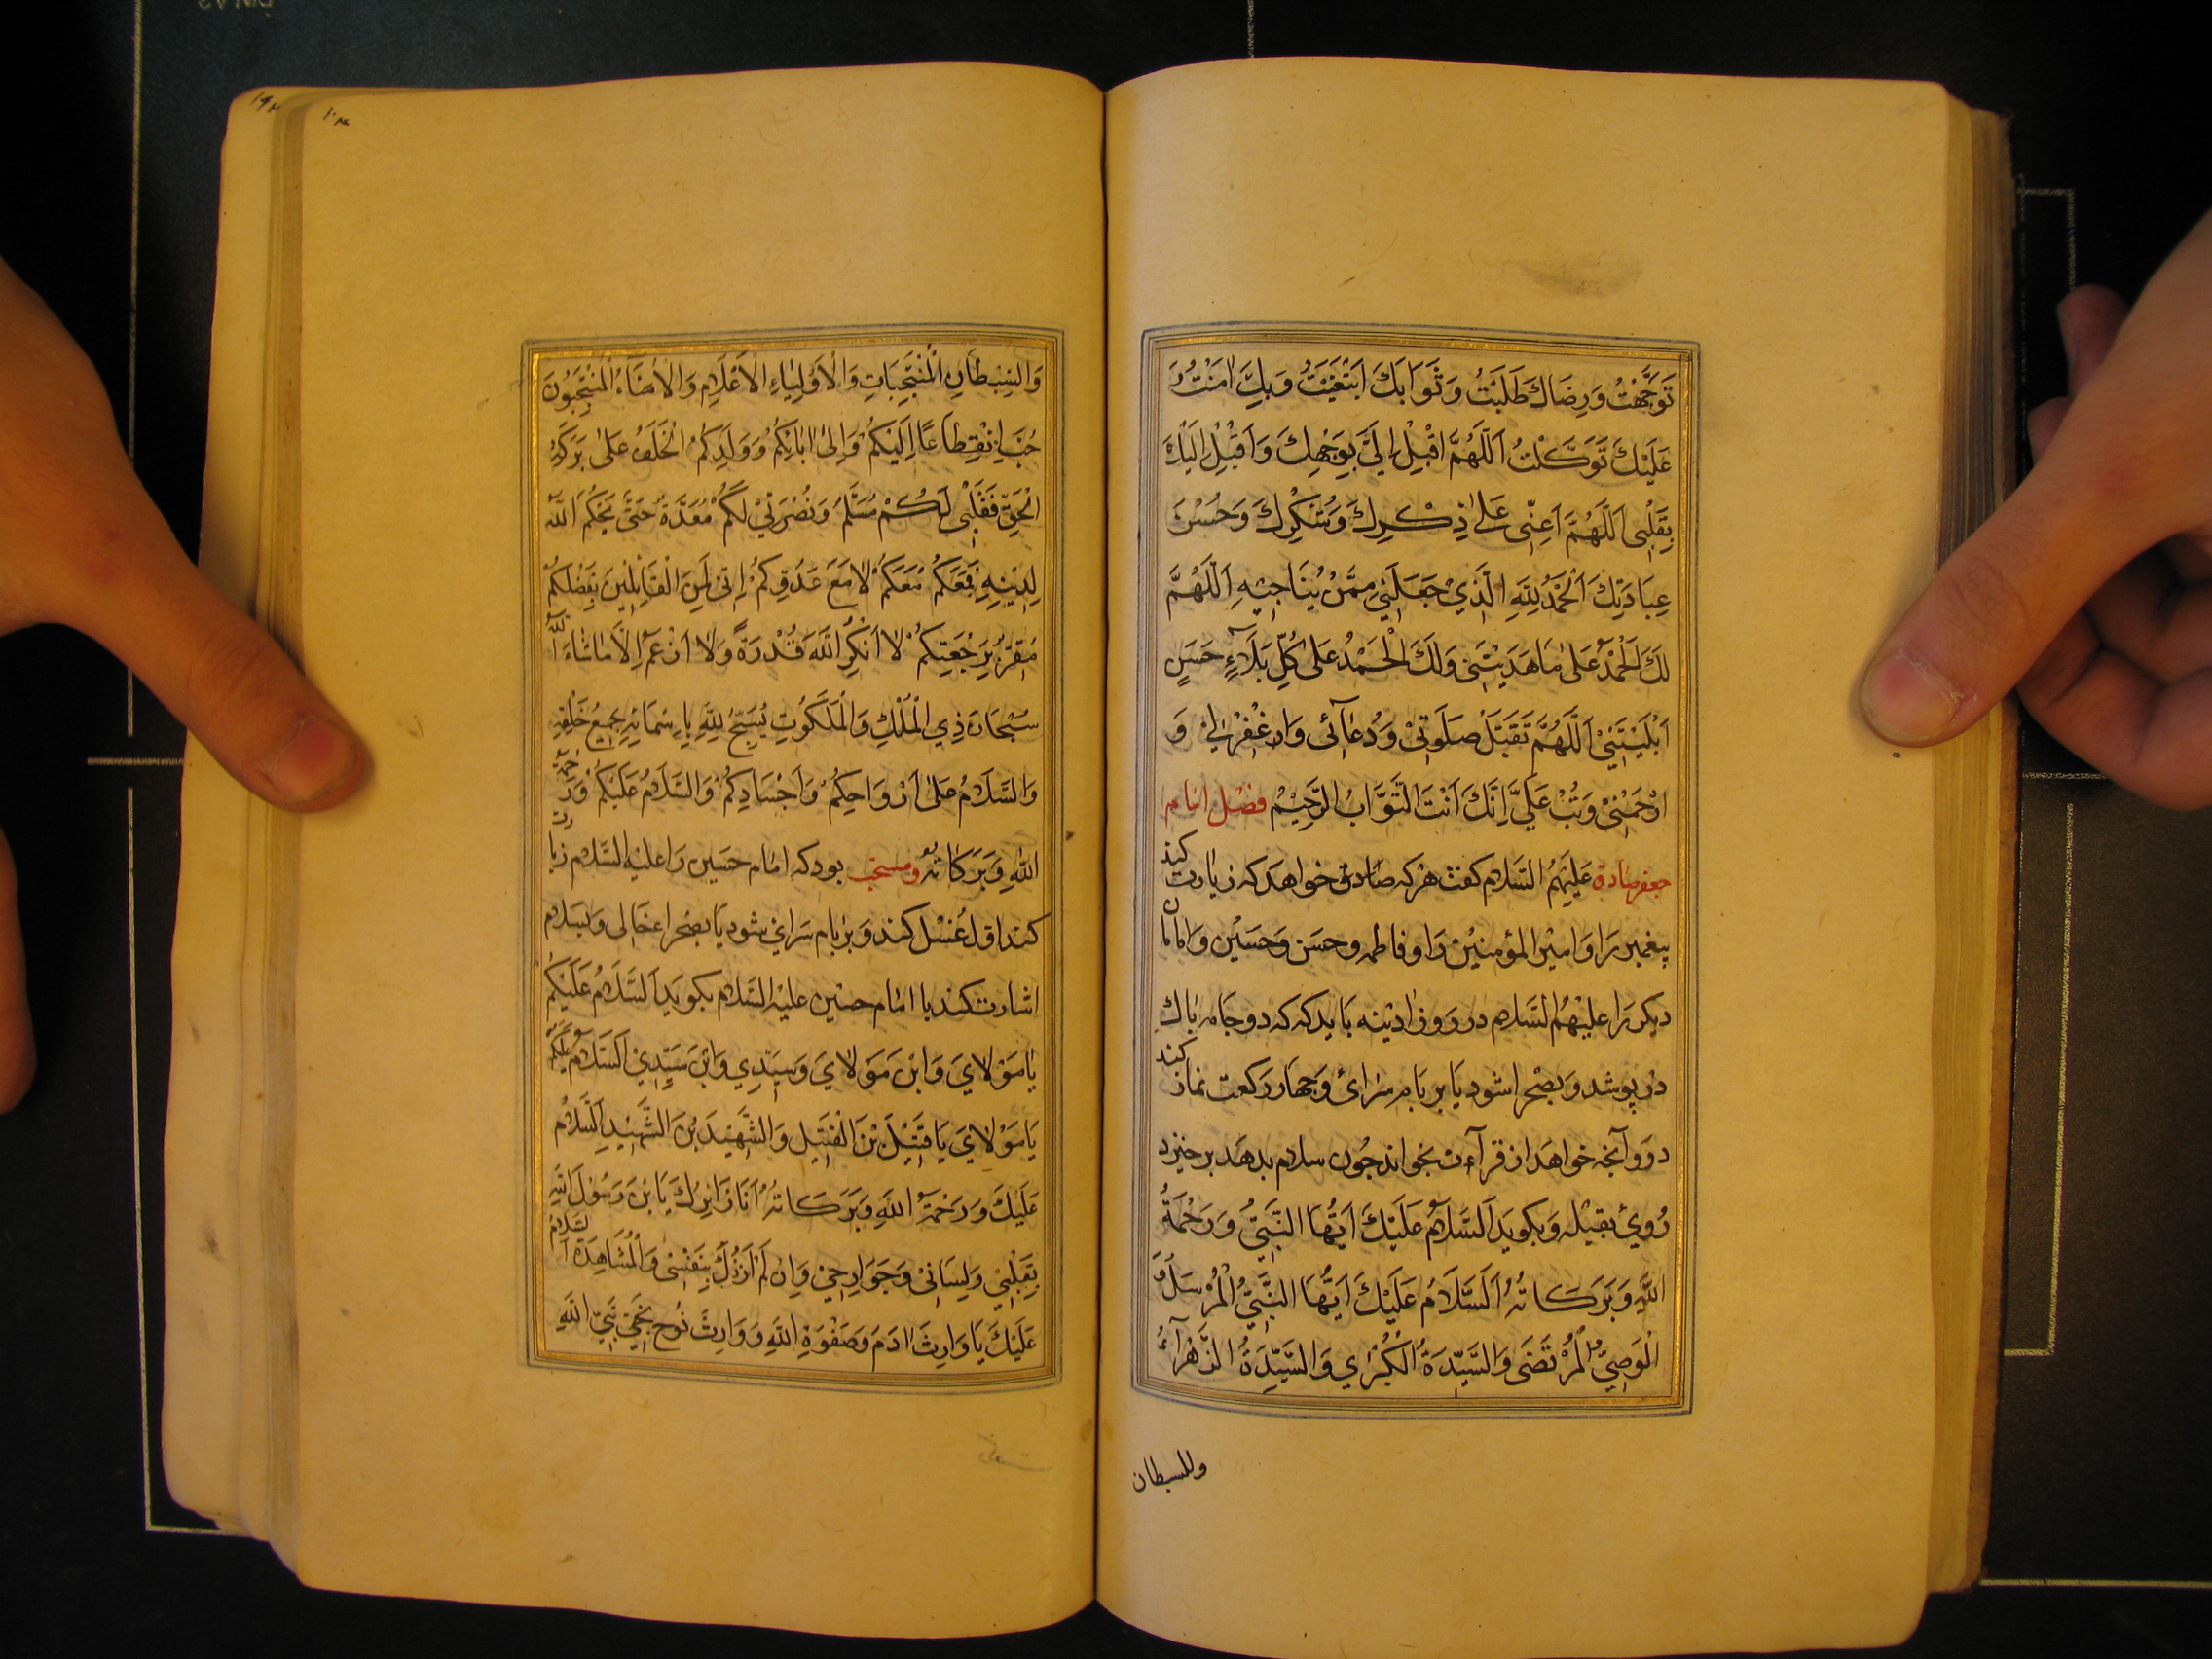 تَوَجَّهْتُ وَرِضَاكَ طَلَبْتُ وَثَوَابَكَ ابْتَغَيْتُ وَبِكَ اٰمَنْتُ وَ
عَلَيْكَ تَوَكَّلْتُ اَللّٰهُمَّ اَقْبِلْ اِلَيَّ بِوَجْهِكَ وَاَقْبِلْ اِلَيْكَ
بِقَلْبِى اَللّٰهُمَّ اَعِنِّى عَلىٰ ذِكْرِكَ وَشُكْرِكَ وَحُسْنَ
عِبَادَتِكَ اَلْحَمْدُ لِلّٰهِ الَّذِيْ جَعَلَنِيْ مِمَّنْ يُنَاجِيْهِ اَللّٰهُمَّ
لَكَ الْحَمْدُ عَلىٰ مَا هَدَيْتَنِى وَلَكَ الْحَمْدُ عَلىٰ كُلِّ بَلَآءٍ حَسَنٍ
اَبْلَيْتَنِيْ اَللّٰهُمَّ تَقَبَّلْ صَلَوتِيْ وَدُعَآئى وَاغْفِرْلِيْ وَ
ارْحَمْنِيْ وَتُبْ عَلَيَّ اِنَّكَ اَنْتَ التَّوَّابُ الرَّحِيْمُ فصْل امام
جعفر صادق عَلَيْهِمُ السَّلام كفت هركه صادق خواهد كه زيارت كند
پيغمبر رَا وَاميْر المؤمنيْن رَا وفاطمه وحسَن وَحسَيْن وَامامان
ديكر رَا عليْهُم السَّلام در رَوز اديْنه بَايد كه كه دوجَامه پاك
درپوشد وَبصْحرا شود يَا بر بَام سَراى وَجهار ركعت نماز كند
دروآنچه خواهَد از قرآءت بخواند چون سلام بدهَد برخيزد
رُوي بقبْله وَبكويد اَلسَّلامُ عَلَيْكَ اَيُّهَا النَّبِيُّ وَرَحْمَةُ
اللّٰهِ وَبَرَكَاتُهُ اَلسَّلَامُ عَلَيْكَ اَيُّهَا النَّبِيُّ الْمُرْسَلُ وَ
الْوَصِيُّ الْمُرْتَضَى وَالسَّيِّدَةُ الْكُبْرٰي وَالسَّيِّدَةُ الزَّهْرَآءُ
وللسبطان
وَالسِّبْطَانِ الْمُنْتَجَبَاتِ وَالْاَوْلِيَاءِ الْاَعْلَامِ وَالْاُمَنَاءُ الْمُنْتَجَبُونَ
اِنْقِطَاعًا اِلَيْكُمْ وَاِلىٰ اٰبَائِكُمْ وَوَلَدِكُمُ الْخَلَفُ عَلىٰ بَرَكَةِ
الْحَقِّ فَقَلْبِى لَكُمْ مُسَلَّمٌ وَنُصْرَتِيْ لَكُمْ مُعَدَّةٌ حَتَّى يَحْكُمَ اللّٰهُ
لِدِيْنِهِ فَمَعَكُمْ مَعَكُمْ لَا مَعَ عَدُوِّكُمْ اِنِّى لَمِنَ الْقَائِلِيْنَ بِفَضْلِكُمْ
مُقِرٌّ بِرَجْعَتِكُمْ لَا اُنْكِرُ اللّٰهَ قُدْرَةً وَلَا اَزْعَمُ اِلَّا مَا شَاءَ اللّٰهُ
سُبْحَانَ ذِي الْمُلْكِ وَالْمَلَكُوتِ يُسَبِّحُ لِلّٰهِ بِاَسْمَائِهِ جَمِيْعُ خَلْقِهِ
وَالسَّلَامُ عَلىٰ اَرْوَاحِكُمْ وَاَجْسَادِكُمْ وَالسَّلَامُ عَلَيْكُمْ وَرَحْمَةُ
اللّٰهِ وَبَرَكَاتُهُ ومستحب بود كه امام حسَين رَا عليْه السَّلام زيارت
كند اول غُسْل كند وَبر بام سَراي شود يَا بصْحرا خالى وَبسَلام
اشارت كند با امام حسيْن عليْه السَّلام بكويد اَلسَّلَامُ عَلَيْكُمْ
يَا مَوْلَايَ وَابْنَ مَوْلَايَ وَسَيِّدِي وَابْنَ سَيِّدِيْ اَلسَّلَامُ عَلَيْكُمْ
يَا مَوْلَايَ يَا قَتِيْلَ بْنَ الْقَتِيْلِ وَالشَّهِيْدَ بْنَ الشَّهِيْدِ اَلسَّلَامُ
عَلَيْكَ وَرَحْمَةُ اللّٰهِ وَبَرَكَاتُهُ اَنَا زَائِرُكَ يَا بْنَ رَسُوْلِ اللّٰهِ
بِقَلْبِيْ وَلِسَانِيْ وَجَوَارِحِيْ وَاِنْ لَمْ اَزُرْكَ بِنَفْسِى وَالْمُشَاهَدَةِ اَلسَّلَامُ
عَلَيْكَ يَا وَارِثَ اٰدَمَ وَصَفْوَةِ اللّٰهِ وَوَارِثَ نُوحٍ نَبِيِّ اللّٰهِ